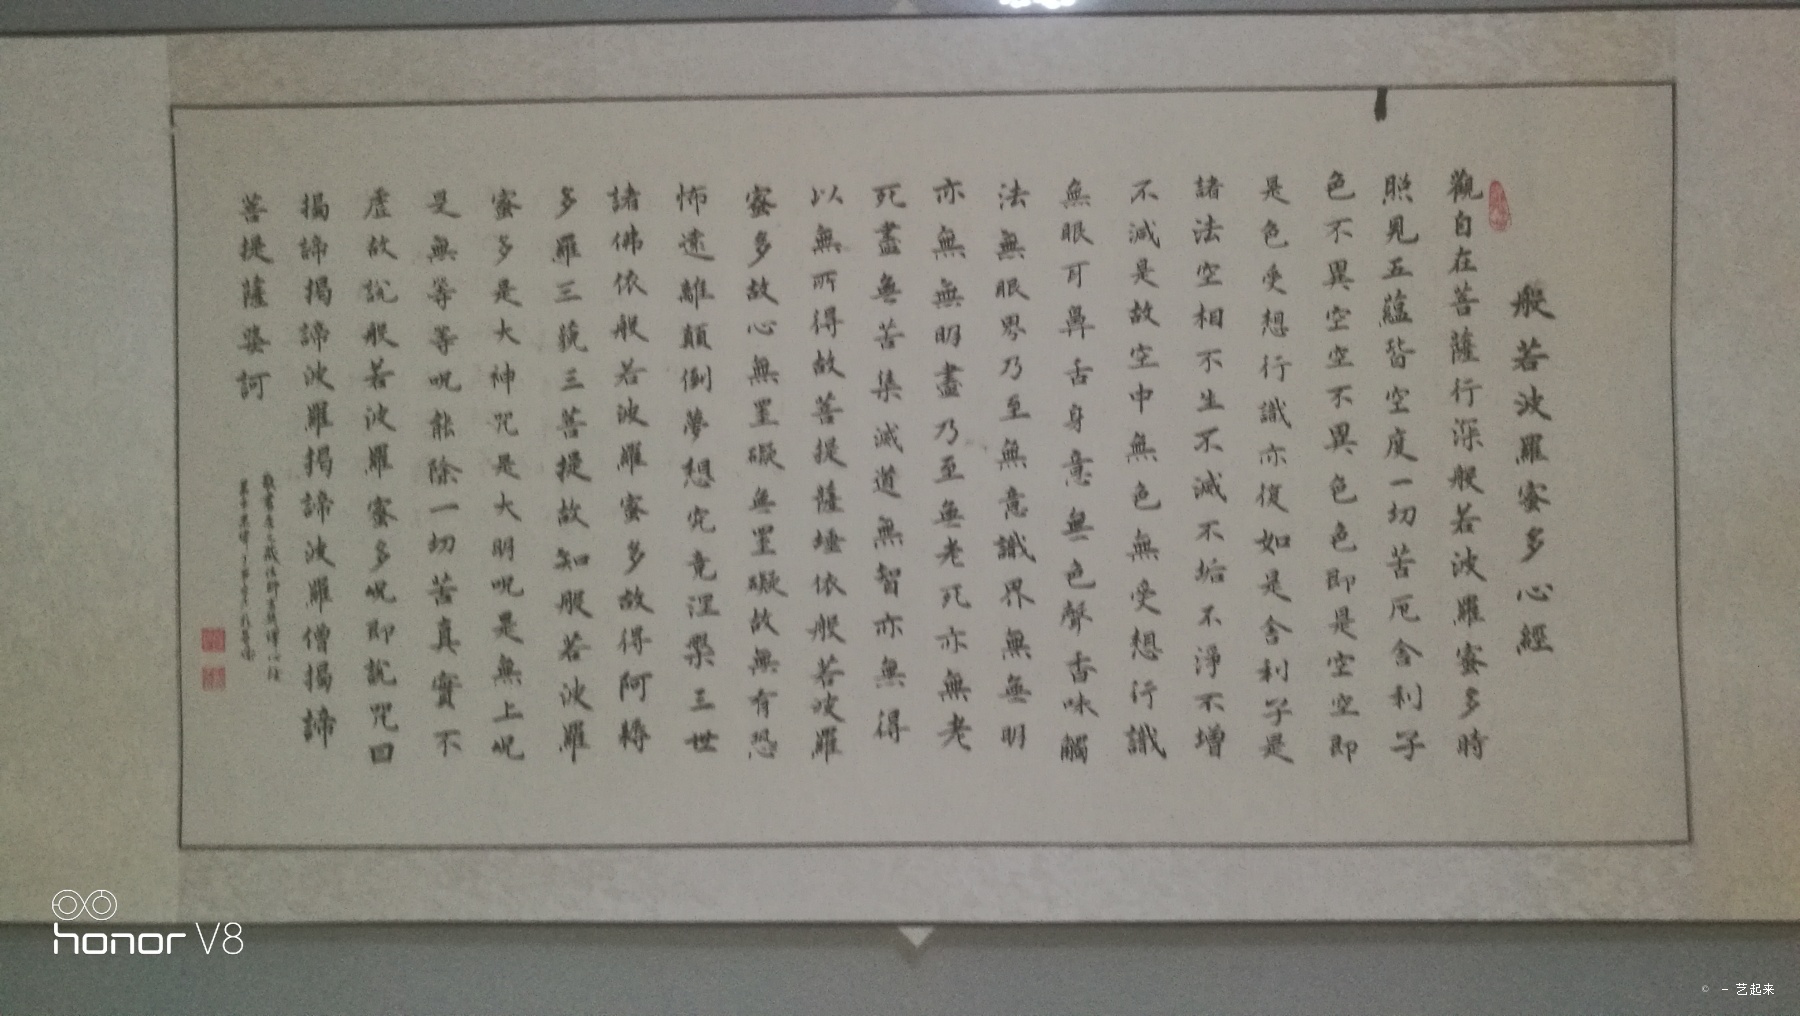 般若波羅蜜多心經
觀自在菩薩行深般若波羅蜜多時
照見五蘊皆空度一切苦厄舍利子
色不異空空不異色色即是空空即
是色受想行識亦復如是舍利子是
諸法空相不生不滅不垢不淨不增
不減是故空中無色無受想行識
無眼耳鼻舌身意無色聲香味觸
法無眼界乃至無意識界無無明
亦無無明盡乃至無老死亦無老
死盡無苦集滅道無智亦無得
以無所得故菩提薩埵依般若波羅
蜜多故心無罣礙無罣礙故無有恐
怖遠離顛倒夢想究竟涅槃三世
諸佛依般若波羅蜜多故得阿耨
多羅三藐三菩提故知般若波羅
蜜多是大神咒是大明呪是無上呪
是無等等呪能除一切苦真實不
虛故說般若波羅蜜多呪即說咒曰
揭諦揭諦波羅揭諦波羅僧揭諦
菩提薩婆訶
honor V8
© - 艺起来